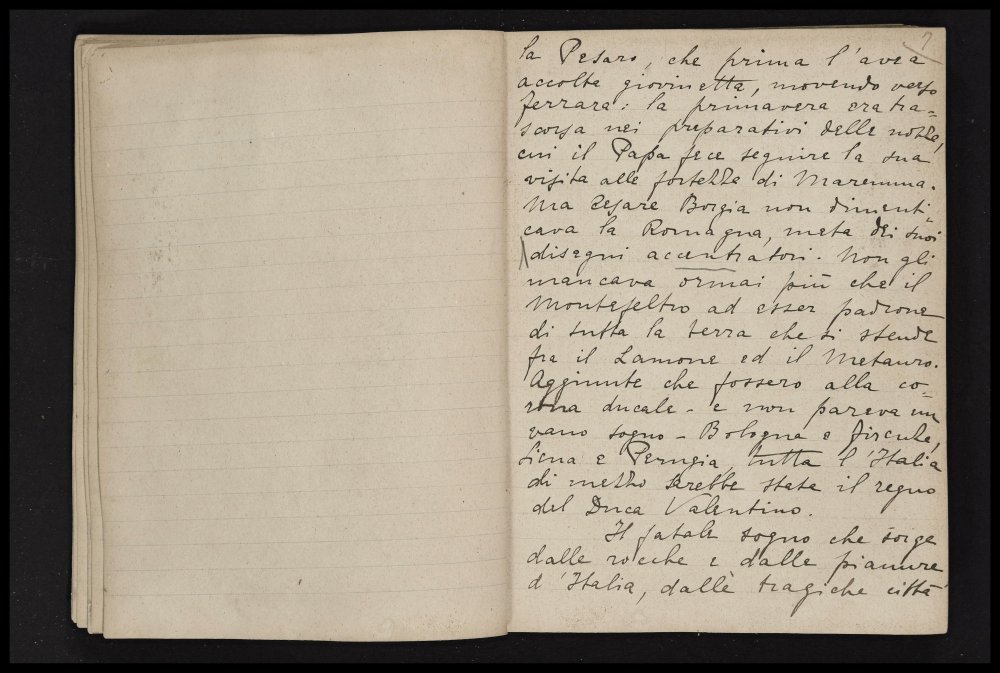 7
la Pesaro, che prima l'avea
accolta giovinetta, movendo verso
Ferrara: la primavera era tra=
scorsa nei preparativi delle nozze,
cui il Papa fece seguire la sua
visita alle fortezze di Maremma.
Ma Cesare Borgia non dimenti=
cava la Romagna, meta dei suoi
disegni accentratori. Non gli
mancava ormai più che il
Montefeltro ad esser padrone
di tutta la terra che si stende
fra il Lamone ed il Metauro.
Aggiunte che fossero alla co=
rona ducale - e non pareva un
vano sogno - Bologna e Firenze,
Siena e Perugia, tutta l'Italia
di mezzo sarebbe stata il regno
del Duca Valentino.
Il fatale sogno che sorge
dalle rocche e dalle pianure
d'Italia, dalle tragiche città